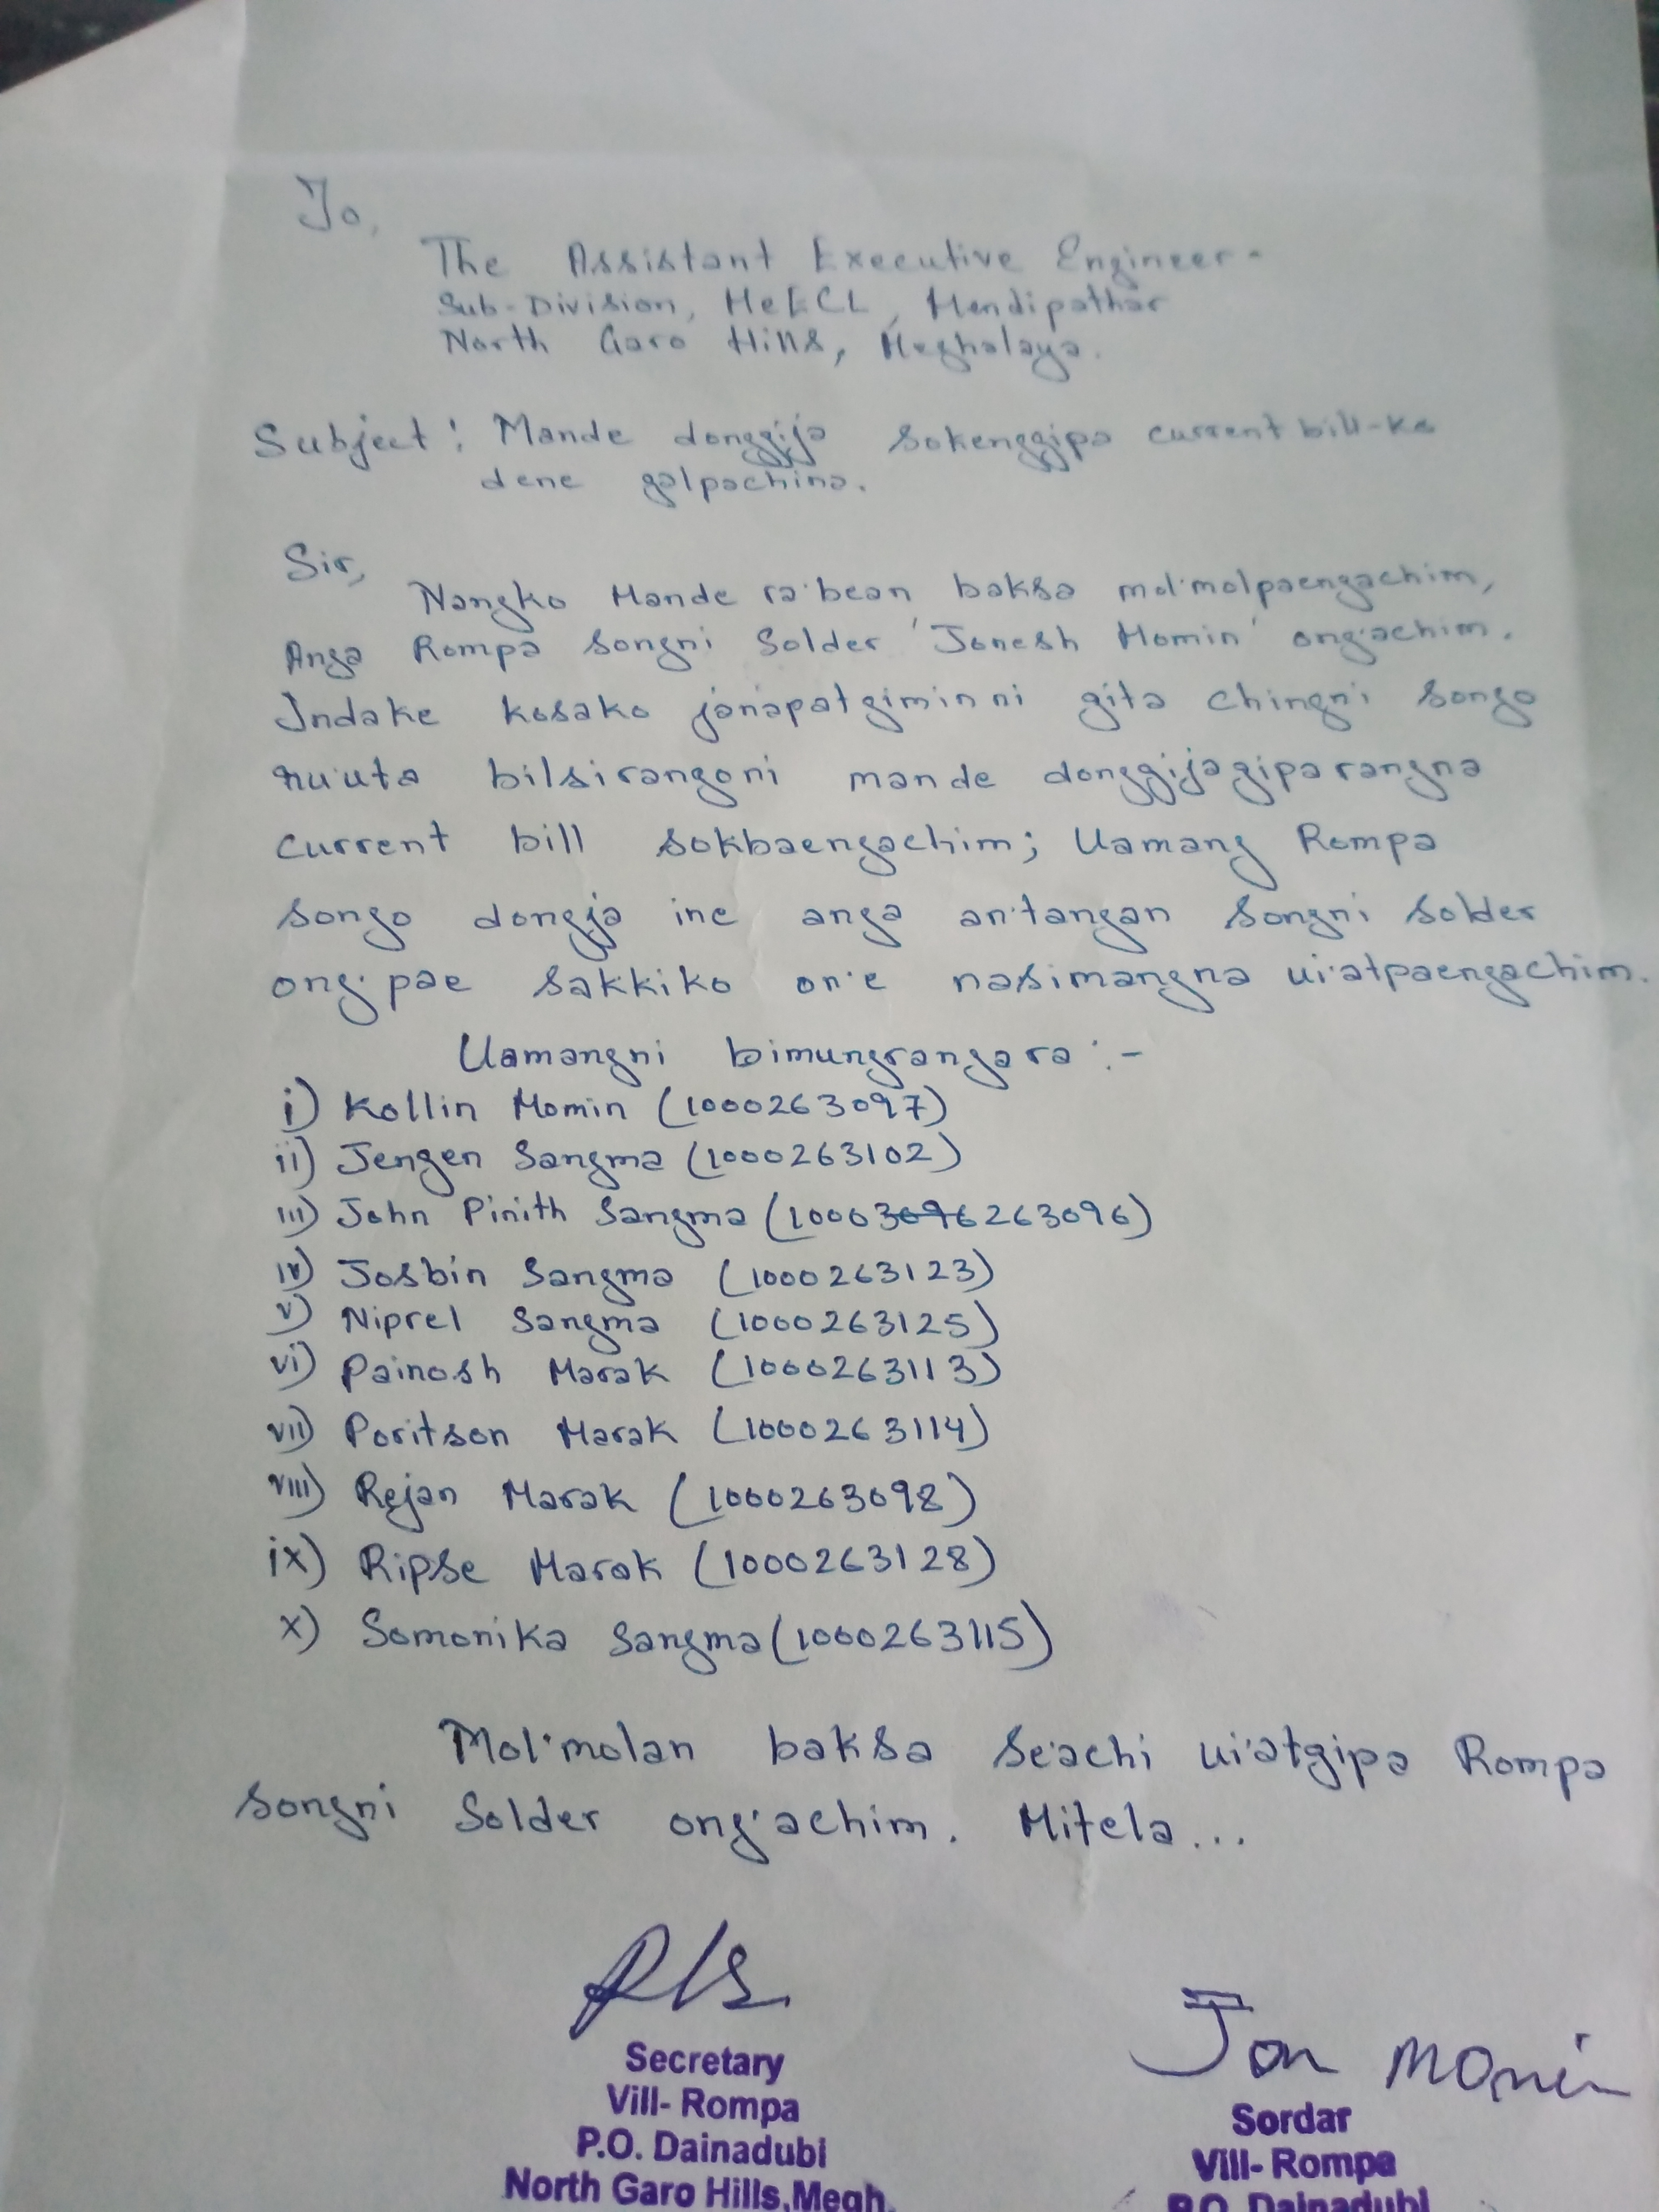 To,
The Assistant Executive Engineer-
Sub-Division, MeECL, Mendipathar
North Garo Hills, Meghalaya.
Subject: Mande donggija sokenggipa current bill-ko
dene galpachina.
Sir,
Nangko Mande ra·bean baksa mol·molpaengachim,
Anga Rompa songni Solder 'Jonesh Momin' ong·achim.
Indake kosako janapatgiminni gita chingni songo
hu·uta bilsirangoni mande donggijagiparangna
current bill sokbaengachim; Uamang Rompa
songo dongja ine anga an·tangan songni solder
ong·pae sakkiko on·e nasimangna ui·atpaengachim.
Uamangni bimungrangara :-
i) Kollin Momin (1000263097)
ii) Jengen Sangma (1000263102)
iii) John Pinith Sangma (10003096263096)
iv) Josbin Sangma (1000263123)
v) Niprel Sangma (1000263125)
vi) Painosh Marak (1000263113)
vii) Poritson Marak (1000263114)
viii) Rejan Marak (1000263098)
ix) Ripse Marak (1000263128)
x) Somonika Sangma (1000263115)
Mol·molan baksa se·achi ui·atgipa Rompa
songni Solder ong·achim. Mitela...
Jon Momin
Secretary
Vill- Rompa
P.O. Dainadubi
North Garo Hills,Megh.
Sordar
Vill- Rompa
P.O. Dainadubi